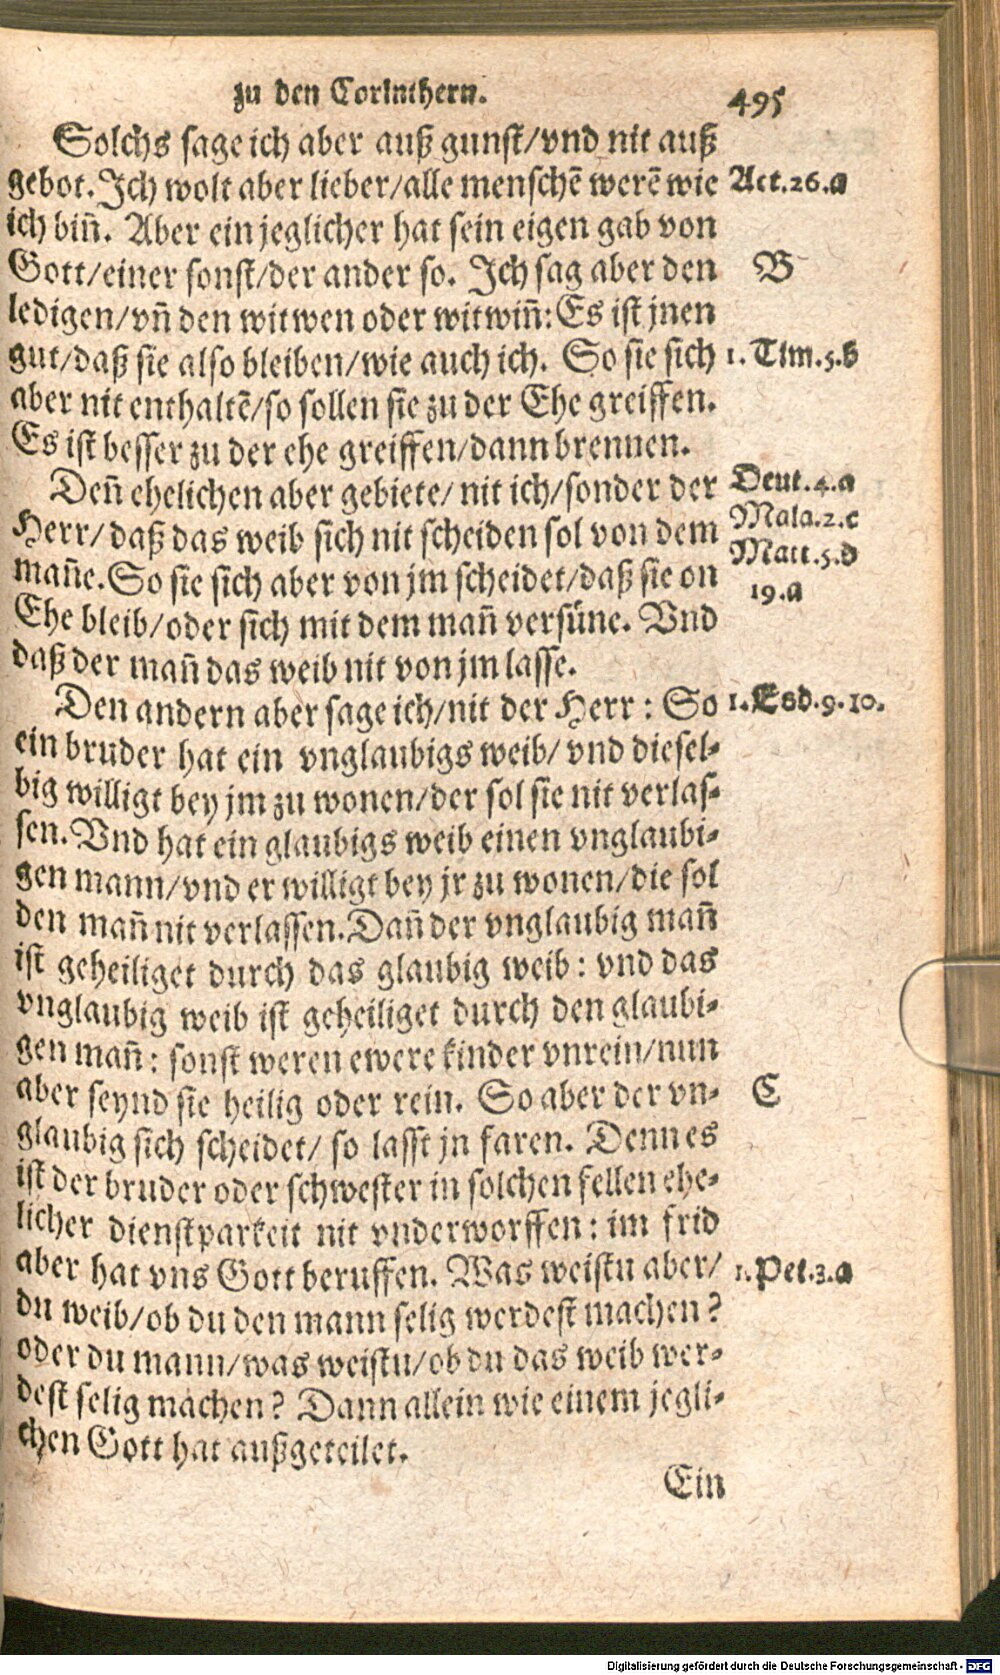 zu den Corinthern. 495
Solchs sage ich aber auß gunst/vnd nit auß
gebot. Ich wolt aber lieber/alle menschē werē wie Act.26.a
ich biñ. Aber ein jeglicher hat sein eigen gab von
Gott/einer sonst/der ander so. Ich sag aber den B
ledigen/vñ den witwen oder witwiñ: Es ist jnen
gut/daß sie also bleiben/wie auch ich. So sie sich 1. Tim.5.b
aber nit enthaltē/so sollen sie zu der Ehe greiffen.
Es ist besser zu der ehe greiffen/dann brennen.
Deñ ehelichen aber gebiete/ nit ich/sonder der Deut.4.a
Herr/ daß das weib sich nit scheiden sol von dem Mala.2.c
mañe. So sie sich aber von jm scheidet/daß sie on Matt.5.d
Ehe bleib/oder sich mit dem mañ versüne. Vnd 19.a
daß der mañ das weib nit von jm lasse.
Den andern aber sage ich/nit der Herr: So 1.Esd.9.10.
ein bruder hat ein vnglaubigs weib/ vnd diesel-
big willigt bey jm zu wonen/der sol sie nit verlas-
sen. Vnd hat ein glaubigs weib einen vnglaubi-
gen mann/vnd er willigt bey jr zu wonen/die sol
den mañ nit verlassen. Dañ der vnglaubig mañ
ist geheiliget durch das glaubig weib: vnd das
vnglaubig weib ist geheiliget durch den glaubi-
gen mañ: sonst weren ewere kinder vnrein/nun
aber seynd sie heilig oder rein. So aber der vn- C
glaubig sich scheidet/ so lasst jn faren. Denn es
ist der bruder oder schwester in solchen fellen ehe-
licher dienstparkeit nit vnderworffen: im frid
aber hat vns Gott beruffen. Was weistu aber/ 1.Pet.3.a
du weib/ob du den mann selig werdest machen?
oder du mann/was weistu/ob du das weib wer-
dest selig machen? Dann allein wie einem jegli-
chen Gott hat außgeteilet.
Ein
Digitalisierung gefördert durch die Deutsche Forschungsgemeinschaft - DFG